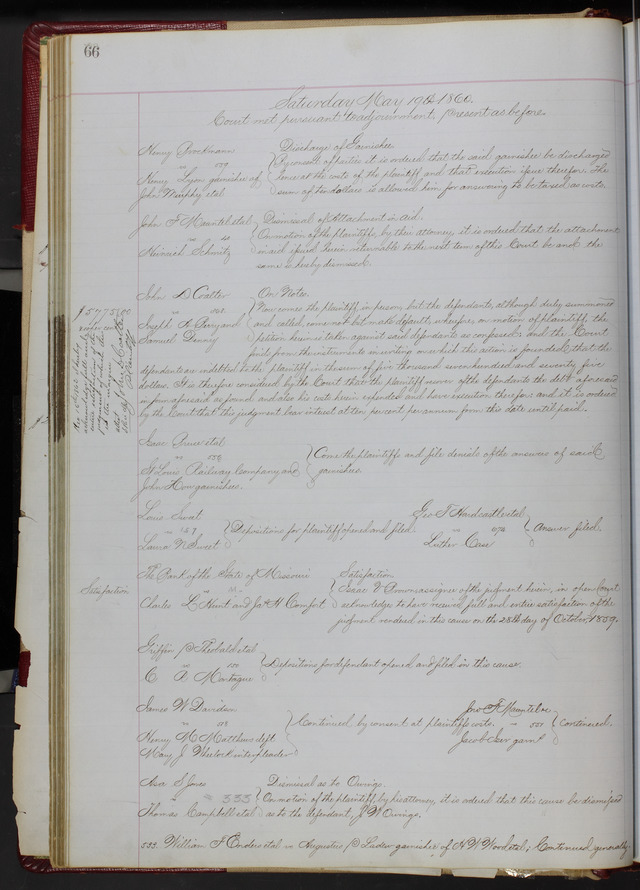 66
Saturday May 19th 1860.
Court met pursuant to adjournment, Present as before.
Henry Brockmann
vs 579
Henry Lyon garnishee of
John Murphy etal
Discharge of Garnishee
By consent of parties it is ordered that the said garnishee be discharged
hence at the costs of the plaintiff and that execution issue therefor. The
sum of ten dollars is allowed him for answering to be taxed as costs.
John F Mauntel etal
vs
Heinrich Schmitz
Dismissal of Attachment in aid.
On motion of the plaintiffs, by their attorney, it is ordered that the attachment
in aid issued herein returnable to the next term of this Court be and the
same is hereby dismissed.
John D Coalter
vs
Joseph A Perry and
Samuel Denny
On Note.
Now comes the plaintiff in person, but the defendants, although duly summoned
and called, come not but make default, wherefore, on motion of plaintiff, the
petition herein is taken against said defendants as confessed; and the Court
finds from the instruments in writing on which this action is founded, that the
defendants are indebted to the plaintiff in the sum of five thousand seven hundred and seventy five
dollars. It is therefore considered by the Court that the plaintiff recover of the defendants the debt aforesaid
in form aforesaid as found and also his costs herein expended and have execution therefor and it is ordered
by the Court that this judgment bear interest at ten per cent per annum from this date until paid.
$5775.00
Isaac etal
vs 538
St Louis Railway Company and
John How garnishees.
Come the plaintiffs and file denials of the answers of said
garnishees.
Louis
vs
Laura N Sweet
Depositions for plaintiff opened and filed.
Geo F Hardcastle etal
vs
Luther Case
Answer filed.
Satisfaction
The Bank of the State of Missouri
vs
Charles L Hunt and Jas H Comfort
Satisfaction
Isaac V assignee of the judgment herein, in open Court
acknowledges to have received full and entire satisfaction of the
judgment rendered in this cause on the 28th day of October 1859.
Griffin & Theobald etal
vs 550
C A Montague
Depositions for defendant opened and filed in this cause.
James W Davidson
vs 558
Henry M Matthews deft
Mary J Wheelock interpleader
Continued by consent at plaintiffs costs.
Jno F Mauntel
vs 551
Jacob garn
Continued.
Asa S Jones
vs 555
Thomas Campbell etal
Dismissal as to Owings.
On motion of the plaintiff, by his attorney, it is ordered that this cause be dismissed
as to the defendant, J W Owings.
533. William F Enders etal vs Augustus garnishee of H W Word etal; Continued generally